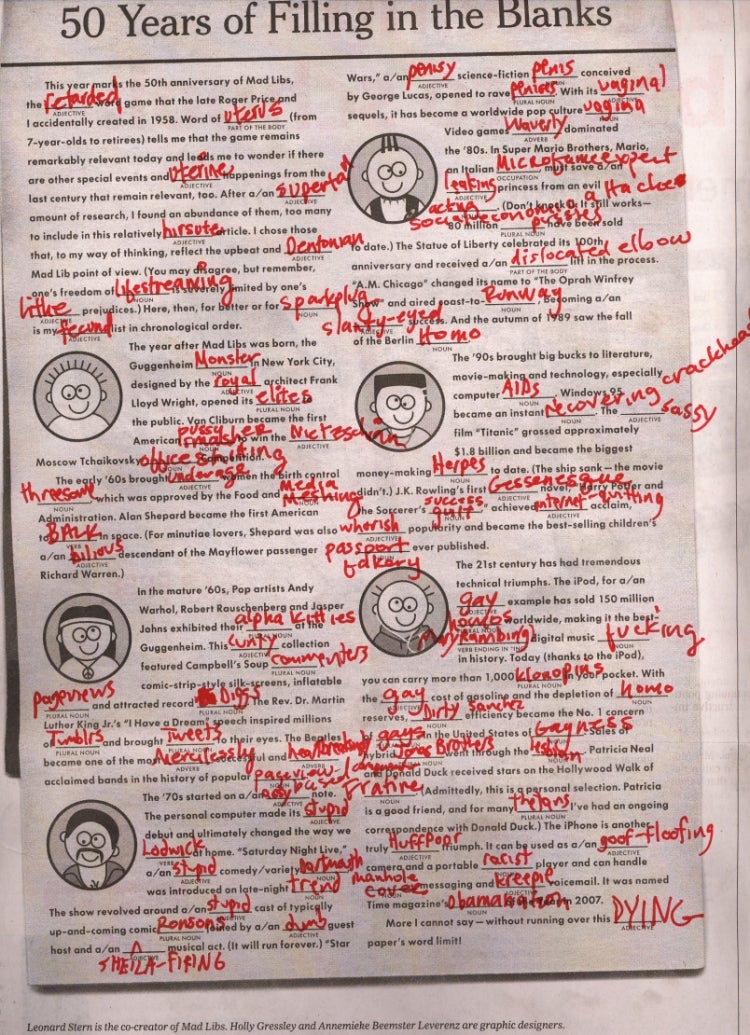 50 Years of Filling in the Blanks
This year marks the 50th anniversary of Mad Libs,
the retarded word game that the late Roger Price and
ADJECTIVE
I accidentally created in 1958. Word of uterus (from
PART OF THE BODY
7-year-olds to retirees) tells me that the game remains
remarkably relevant today and leads me to wonder if there
are other special events and uterine happenings from the
ADJECTIVE
last century that remain relevant, too. After a/an supertall
ADJECTIVE
amount of research, I found an abundance of them, too many
to include in this relatively hirsute article. I chose those
ADJECTIVE
that, to my way of thinking, reflect the upbeat and Dentonian
ADJECTIVE
Mad Lib point of view. (You may disagree, but remember,
one's freedom of lifestreaming is severely limited by one's
NOUN
little prejudices.) Here, then, for better or for sparkplug
ADJECTIVE
NOUN
is my fecund list in chronological order.
ADJECTIVE
The year after Mad Libs was born, the
Guggenheim Monster in New York City,
NOUN
designed by the royal architect Frank
ADJECTIVE
Lloyd Wright, opened its elites to
PLURAL NOUN
the public. Van Cliburn became the first
American pussy smasher to win the Nietzschein
Moscow Tchaikovsky officesquatting Competition.
The early '60s brought underage women the birth control
ADJECTIVE
threesome which was approved by the Food and media meshing
NOUN
NOUN
Administration. Alan Shepard became the first American
to BALK in space. (For minutiae lovers, Shepard was also
VERB
a/an bilious descendant of the Mayflower passenger
ADJECTIVE
Richard Warren.)
In the mature '60s, Pop artists Andy
Warhol, Robert Rauschenberg and Jasper
Johns exhibited their alpha kitties at the
PLURAL NOUN
Guggenheim. This cunty collection
ADJECTIVE
featured Campbell's Soup commenters
PLURAL NOUN
comic-strip-style silk-screens, inflatable
pageviews and attracted record Diggs The Rev. Dr. Martin
PLURAL NOUN
PLURAL NOUN
Luther King Jr.'s "I Have a Dream" speech inspired millions
of Tumblrs and brought Tweets to their eyes. The Beatles
PLURAL NOUN
PLURAL NOUN
became one of the most Mercilessly successful and heartbreakingly
ADVERB
ADVERB
acclaimed bands in the history of popular pageview
NOUN
The '70s started on a/an note.
ADJECTIVE
The personal computer made its stupid
ADJECTIVE
debut and ultimately changed the way we
Lodwick at home. "Saturday Night Live,"
VERB
a/an stupid comedy/variety
ADJECTIVE
NOUN
was introduced on late-night trend
NOUN
The show revolved around a/an stupid cast of typically
ADJECTIVE
up-and-coming comic Ronsons joined by a/an dumb guest
PLURAL NOUN
ADJECTIVE
host and a/an musical act. (It will run forever.) "Star
ADJECTIVE
SHEILA-FIRING
Wars," a/an penisy science-fiction penis conceived
ADJECTIVE
NOUN
by George Lucas, opened to rave penises With its vaginal
PLURAL NOUN
ADJECTIVE
sequels, it has become a worldwide pop culture vagina
NOUN
Video games Waverly dominated
ADVERB
the '80s. In Super Mario Brothers, Mario,
an Italian Microfameexpert must save a/an
OCCUPATION
leaking princess from an evil attachee
ADJECTIVE
(Don't knock it: It still works—
80 million pussies have been sold
PLURAL NOUN
to date.) The Statue of Liberty celebrated its 100th
anniversary and received a/an dislocated elbow lift in the process.
PART OF THE BODY
"A.M. Chicago" changed its name to "The Oprah Winfrey
Show" and aired coast-to-Runway becoming a/an
NOUN
slanty-eyed success. And the autumn of 1989 saw the fall
ADJECTIVE
of the Berlin Homo
NOUN
The '90s brought big bucks to literature,
movie-making and technology, especially
computer AIDs Windows 95
NOUN
became an instant recovering crackhead The sassy
NOUN
ADJECTIVE
film "Titanic" grossed approximately
$1.8 billion and became the biggest
money-making Herpes to date. (The ship sank—the movie
NOUN
didn't.) J.K. Rowling's first Gessenesque novel, "Harry Potter and
ADJECTIVE
the Sorcerer's success guilt" achieved internet-quitting acclaim,
NOUN
ADJECTIVE
whorish popularity and became the best-selling children's
ADJECTIVE
passport fakery ever published.
NOUN
The 21st century has had tremendous
technical triumphs. The iPod, for a/an
gay example has sold 150 million
ADJECTIVE
homos worldwide, making it the best-
PLURAL NOUN
digital music fucking
VERB ENDING IN "ING"
NOUN
in history. Today (thanks to the iPod),
you can carry more than 1,000 klonopins in your pocket. With
PLURAL NOUN
the gay cost of gasoline and the depletion of homo
ADJECTIVE
NOUN
reserves, Dirty Sanchez efficiency became the No. 1 concern
NOUN
of gays in the United States of Gayness Sales of
hybrid Jonas Brothers went through the lesbian Patricia Neal
NOUN
and Donald Duck received stars on the Hollywood Walk of
Fratire (Admittedly, this is a personal selection. Patricia
NOUN
is a good friend, and for many thetans I've had an ongoing
PLURAL NOUN
correspondence with Donald Duck.) The iPhone is another
truly HuffPost triumph. It can be used as a/an goof-floofing
ADJECTIVE
ADJECTIVE
camera and a portable racist player and can handle
NOUN
manhole cover messaging and kreepie voicemail. It was named
Time magazine's Obamanation in 2007.
NOUN
More I cannot say—without running over this DYING
ADJECTIVE
paper's word limit!
Leonard Stern is the co-creator of Mad Libs. Holly Gressley and Annemieke Beemster Leverenz are graphic designers.